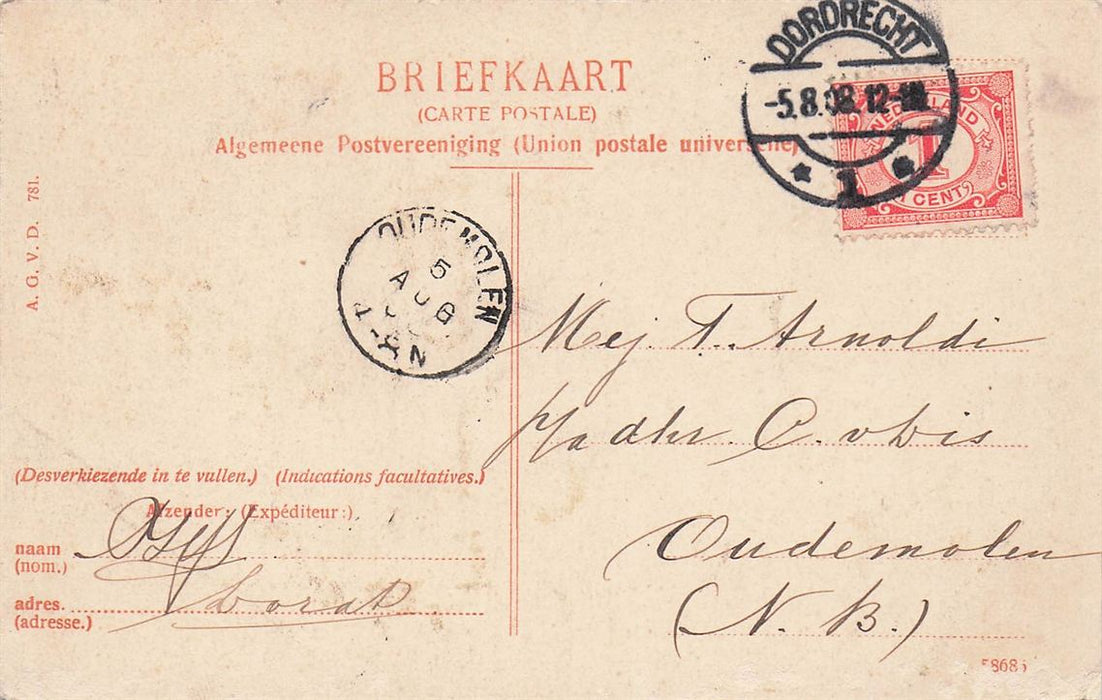 DORDRECHT
-5.8.08.12-
1
NEDERLAND
1
1 CENT
BRIEFKAART
(CARTE POSTALE)
Algemeene Postvereeniging (Union postale universelle)
A. G. V. D. 781.
OUDEMOLEN
5
AUG
4-8 N
Mej T. Arnoldi
C. v
Oudemolen
(N. B.)
(Desverkiezende in te vullen.) (Indications facultatives.)
Afzender: (Expéditeur:)
naam
(nom.)
adres.
(adresse.)
Dordt